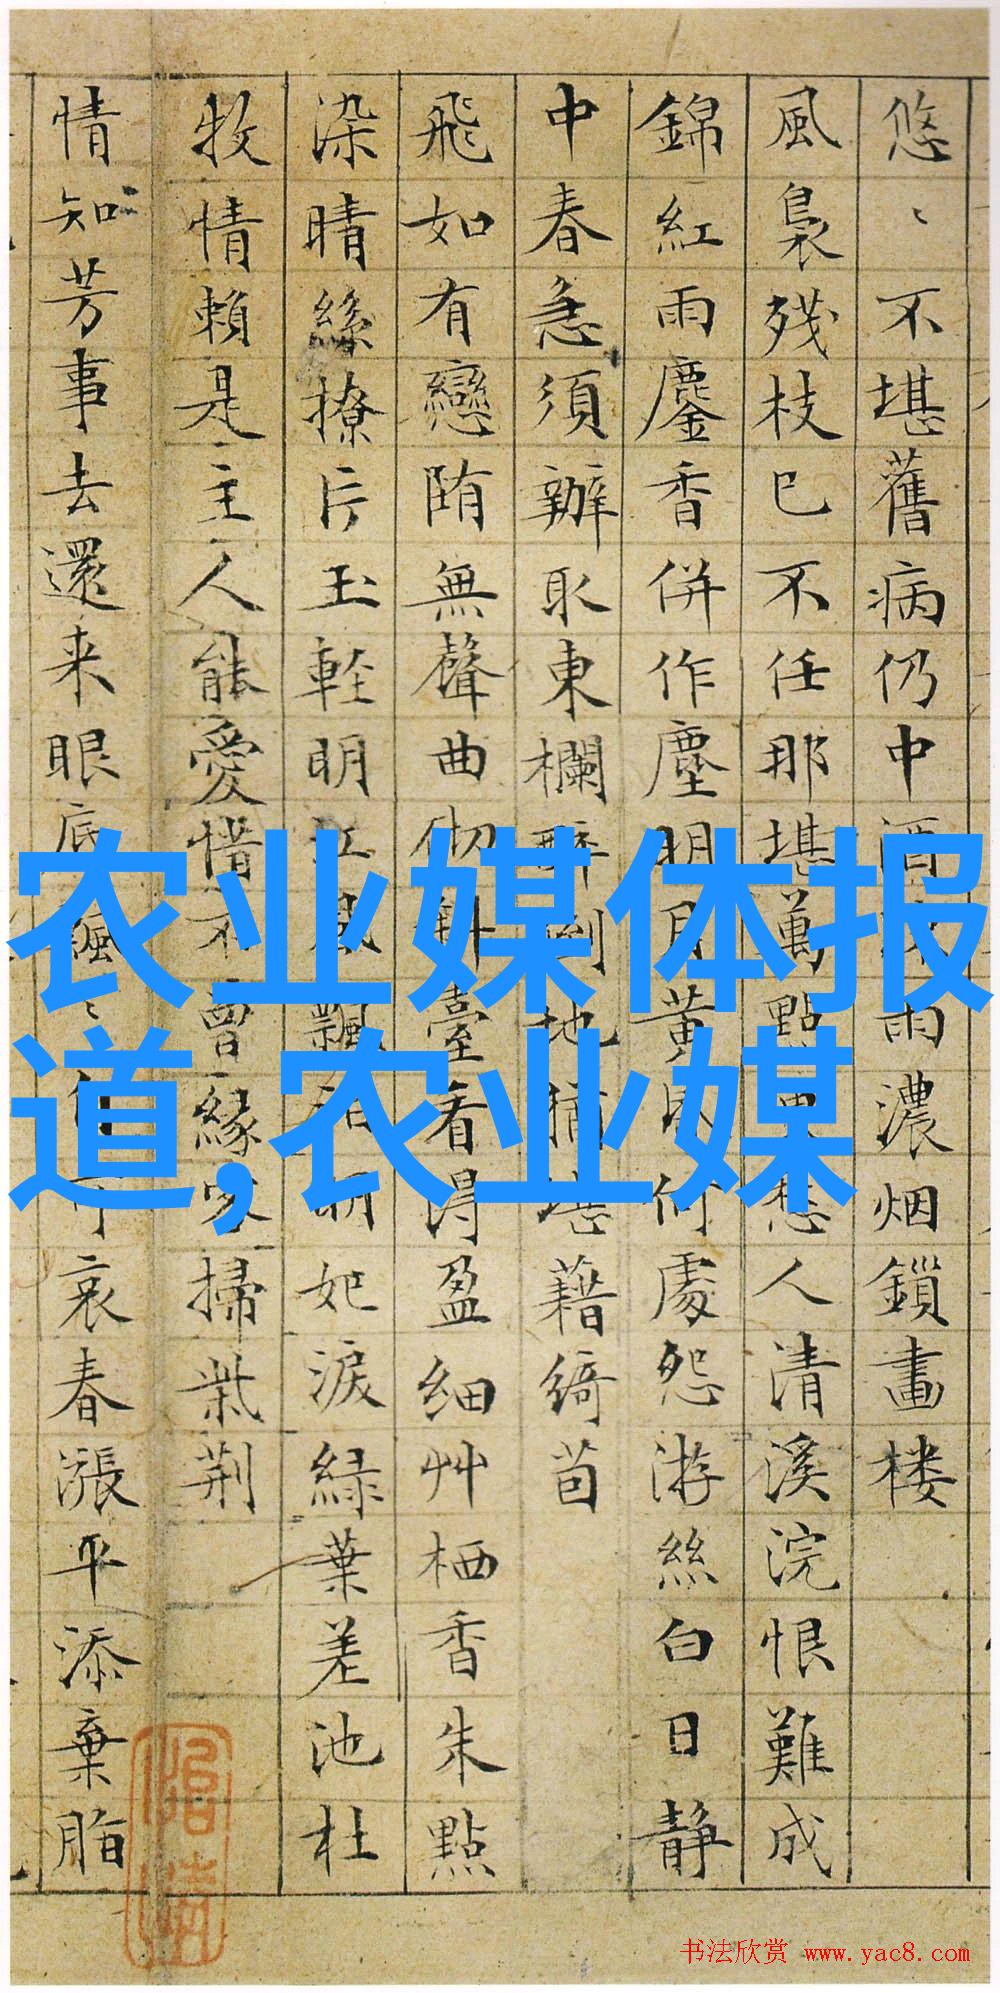 悠、不堪舊病仍中酒雨濃烟鎖畫楼
風裊残枝已不任那堪萬點愁人清溪浣恨難成
錦紅雨鏖香併作塵明月黄何處怨游絲白日静
中春急須辦取東欄醉倒地猶堪藉綺茵
飛如有戀陏無聲曲彻臺看得盈细艸栖香朱點
染晴絲撩片玉輊明江風飄明妃淚緑葉差池杜
牧情賴是主人能愛惜不曾緣客掃柴荆
情知芳事去還来眼底飄、可哀春漲平添棄脂
农业媒体报
道,农业媒
书法欣赏 www.yac8.com